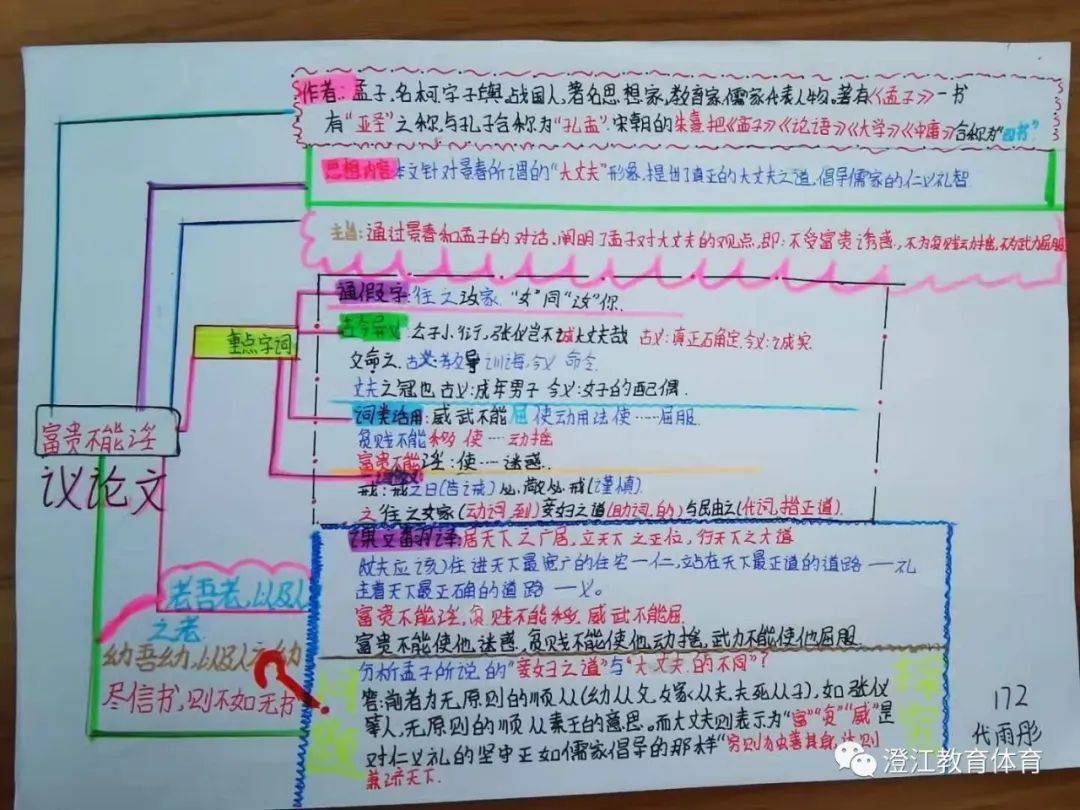 作者:孟子,名柯,字子舆,战国人,著名思想家,教育家,儒家代表人物。著有《孟子》一书
有"亚圣"之称与孔子合称为"孔孟".宋朝的朱熹把《孟子》《论语》《大学》《中庸》合称为"四书"
思想内容本文针对景春所谓的"大丈夫"形象,提出了真正的大丈夫之道,倡导儒家的仁义礼智
主旨:通过景春和孟子的对话,阐明了孟子对大丈夫的观点,即:不受富贵诱惑,不为贫贱动摇,不为武力屈服
重点字词
通假字:往之汝家."女"同"汝"你.
古今异义:公子小衍,张仪岂不诚大丈夫哉 古义:真正石角定.今义:诚实.
父命之.古义:教导训诲,今义 命令.
丈夫之冠也 古义:成年男子 今义:女子的配偶.
词类活用:威武不能屈 使动用法使……屈服.
贫贱不能移 使…动摇
富贵不能淫:使…迷惑.
戒:戒之曰(告诫)必敬必戒(谨慎).
之 往之女家(动词,到)妾妇之道(助词,的)与民由之(代词,指正道).
富贵不能淫
议论文
课文翻译:居天下之广居,立天下之正位,行天下之大道
(丈夫应该)住进天下最宽广的住宅一仁,站在天下最正道的道路——礼
走着天下最正确的道路——义。
富贵不能淫,贫贱不能移,威武不能屈
富贵不能使他迷惑,贫贱不能使他动摇,武力不能使他屈服
老吾老,以及人
之老.
幼吾幼,以及人之幼
尽信书,则不如无书
问题
探究
分析孟子所说的"妾妇之道"与"大丈夫的不同"?
答:前者为无原则的顺从(幼从父,女家从夫,夫死从子),如张仪
等人,无原则的顺从秦王的意思。而大丈夫则表示为"富""贫""威"是
对仁义礼的坚守正如儒家倡导的那样"穷则独善其身,达则
兼济天下.
172
代雨彤
澄江教育体育